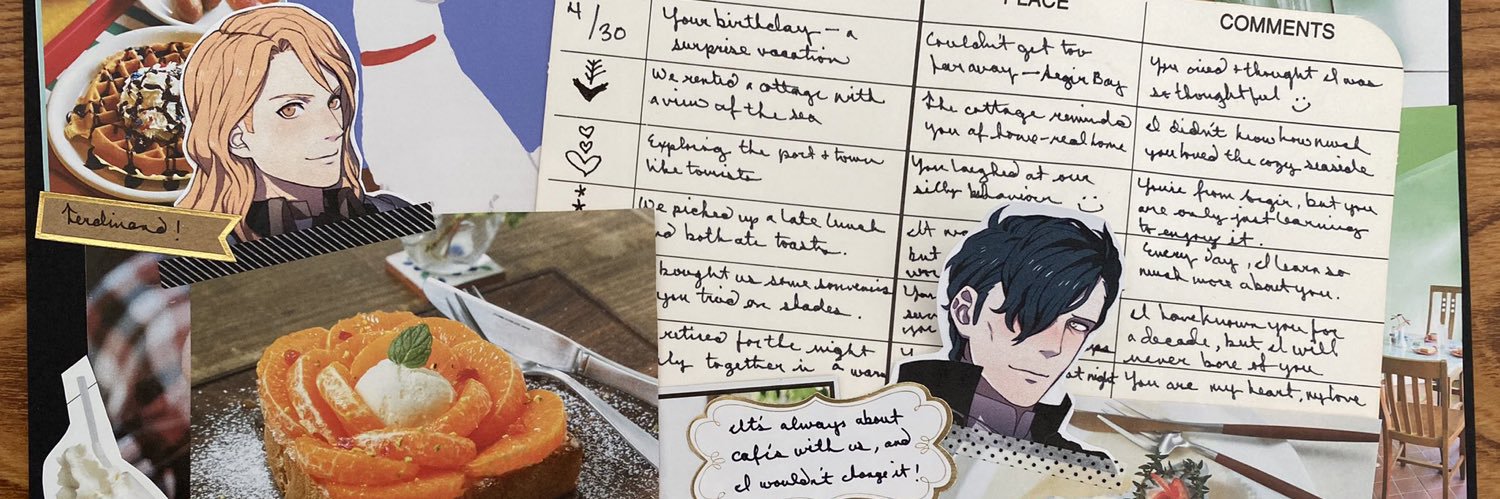 PLACE
COMMENTS
4/30
Your birthday — a
surprise vacation
Couldn't get too
far away — Aegir Bay
You cried + thought I was
so thoughtful
We rented a cottage with
a view of the sea
The cottage reminds
you of home - real home
I didn't know how much
you loved the cozy seaside
Exploring the port + town
like tourists
You laughed at our
silly behaviour
You're from Aegir, but you
are only just learning
to enjoy it.
We picked up a late lunch
both ate toasts.
It
but
Every day, I learn so
much more about you.
bought us some souvenirs
you tried on shades.
You
I have known you for
a decade, but I will
never bore of you
retired for the night
together in a warm
at night
You are my heart, my love
Ferdinand!
It's always about
cafés with us, and
I wouldn't change it!